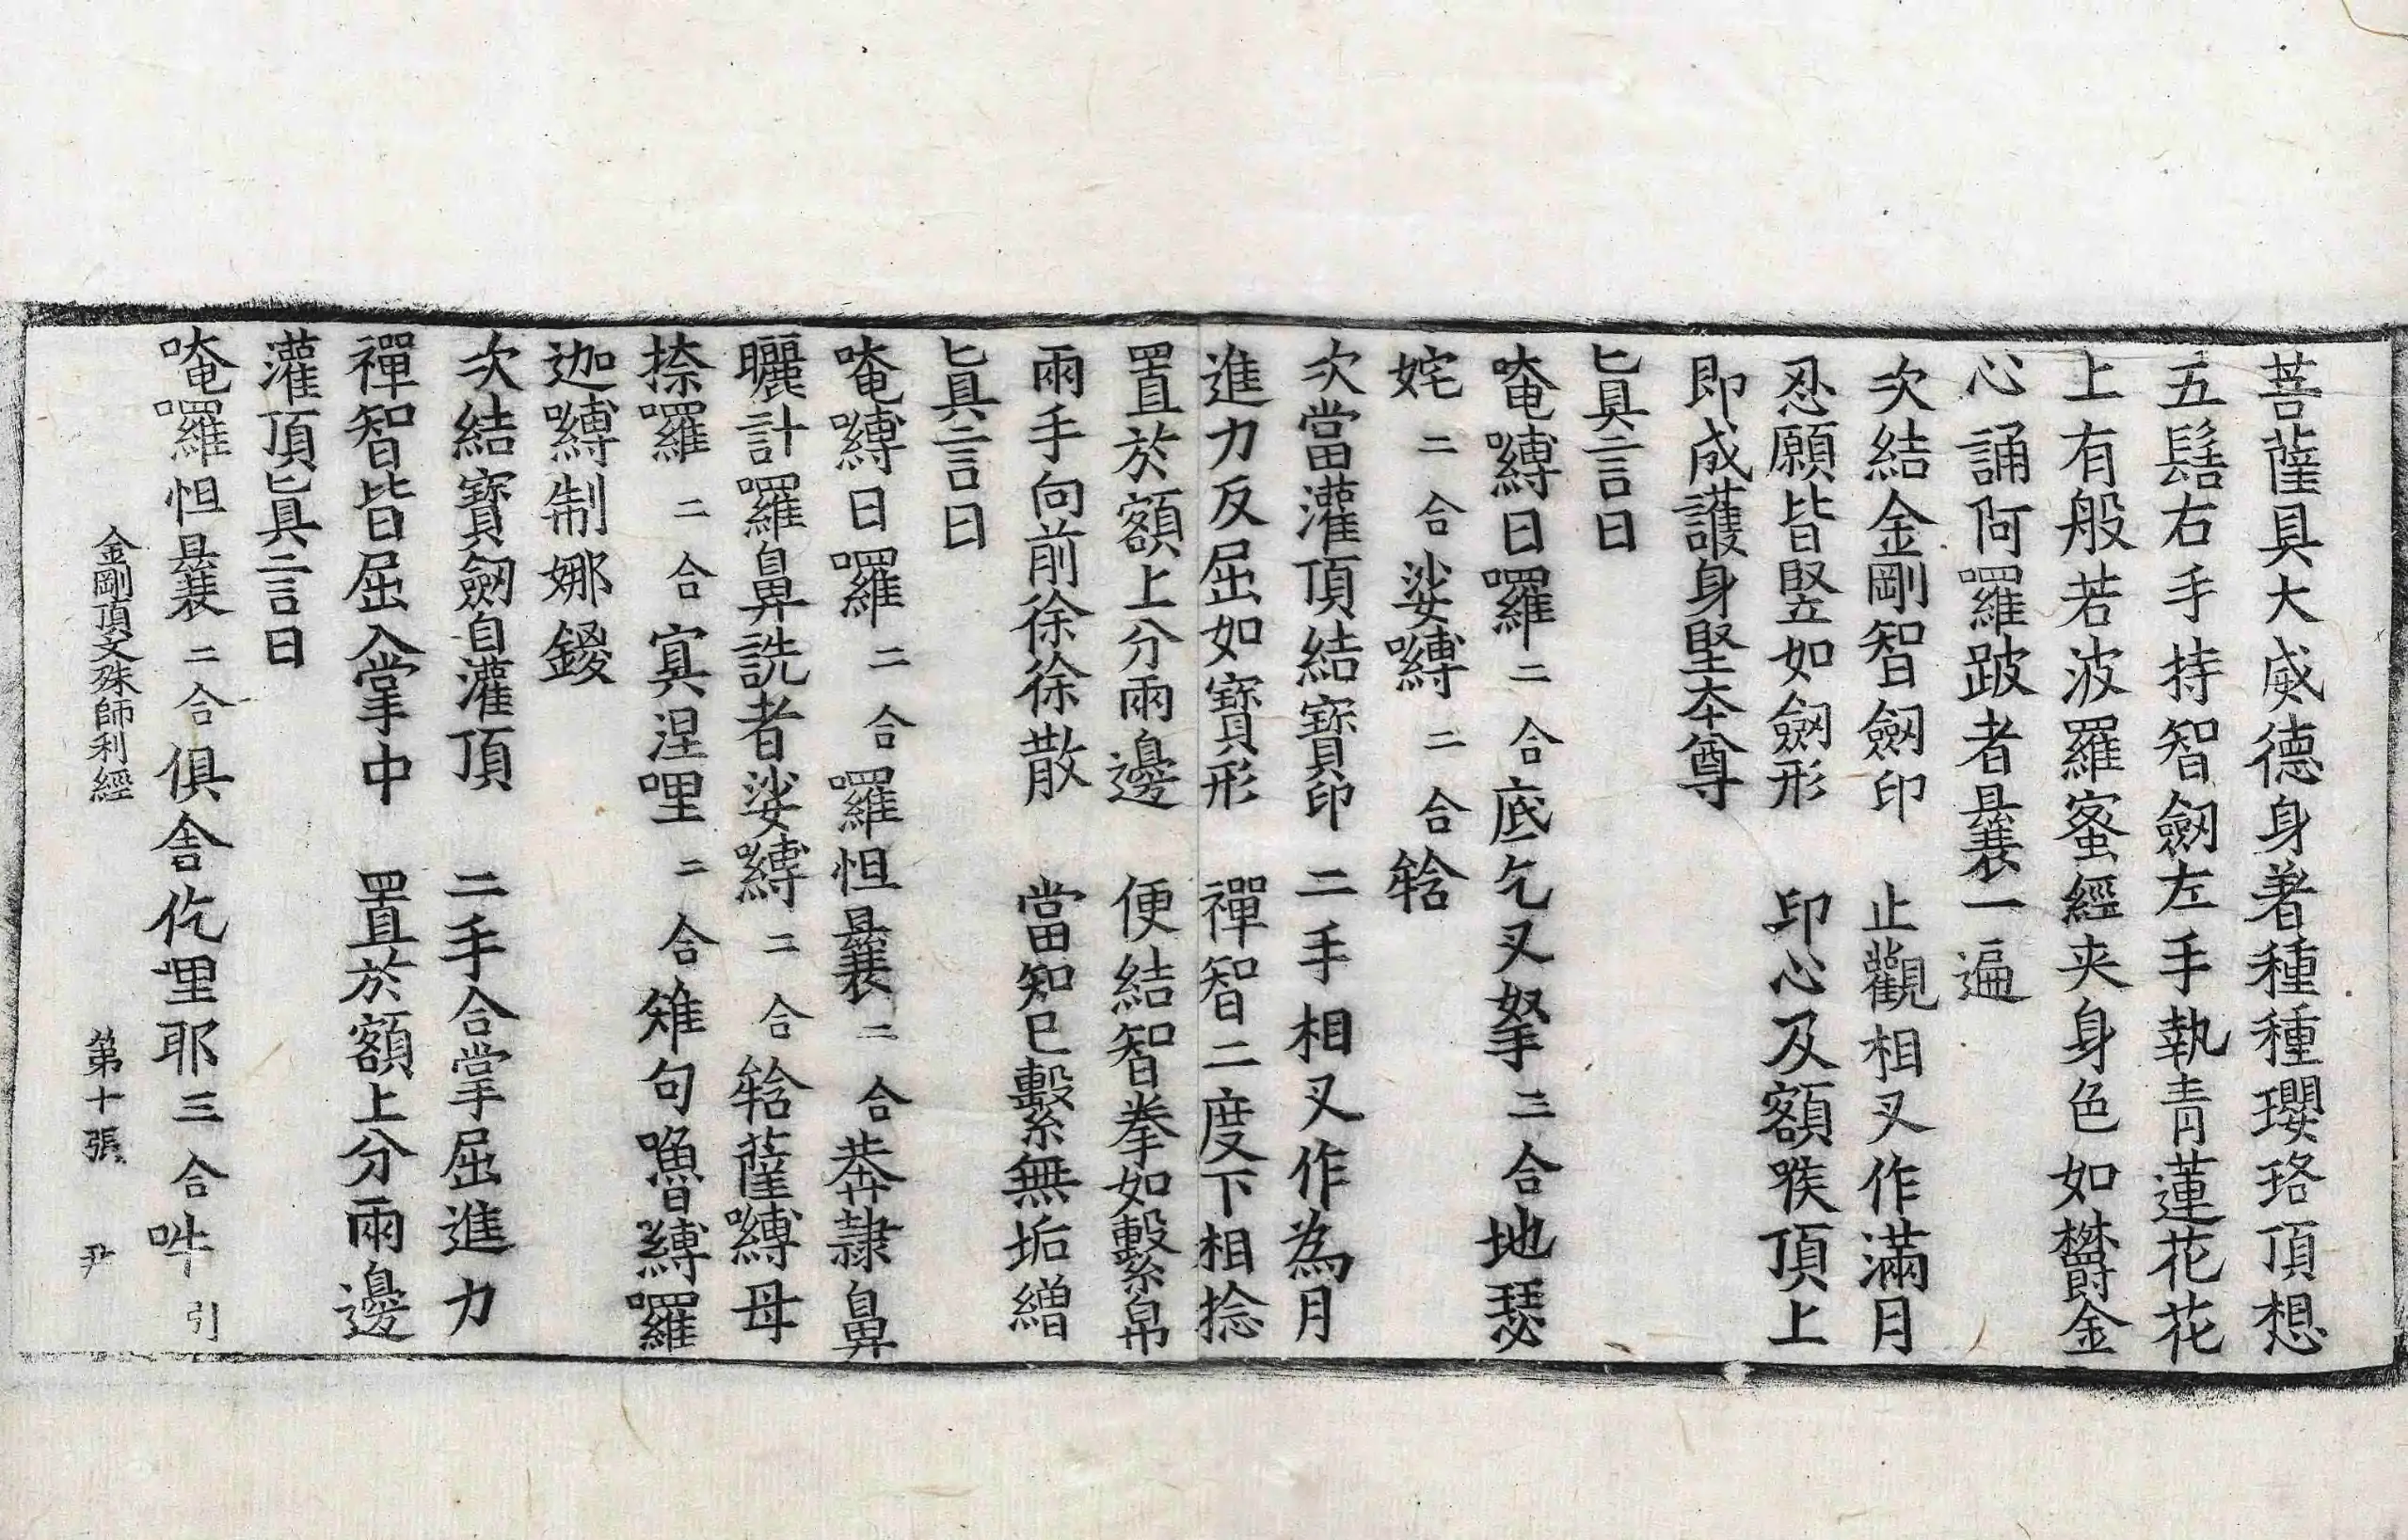 菩薩具大威德身著種種瓔珞頂想
五髻右手持智劒左手執青蓮花花
上有般若波羅蜜經夾身色如欝金
心誦阿囉跛者曩一遍
次結金剛智劒印　止觀相叉作滿月
忍願皆竪如劒形　印心及額喉頂上
即成護身堅本尊
眞言曰
唵嚩日囉二合底乞叉拏三合地瑟
姹二合娑嚩二合𤚥
次當灌頂結寶印　二手相叉作為月
進力反屈如寶形　禪智二度下相捻
置於額上分兩邊　便結智拳如繫帛
兩手向前徐徐散　當知已繫無垢繒
眞言曰
唵嚩日囉二合囉怛曩二合恭隷鼻
曬計囉鼻詵者娑嚩二合𤚥薩嚩母
捺囉二合寘涅哩二合雉句嚕嚩囉
迦嚩制娜鑁
次結寶劒自灌頂　二手合掌屈進力
禪智皆屈入掌中　置於額上分兩邊
灌頂眞言曰
唵囉怛曩二合俱舍仡哩耶三合吽引
金剛頂文殊師利經　第十張　尹